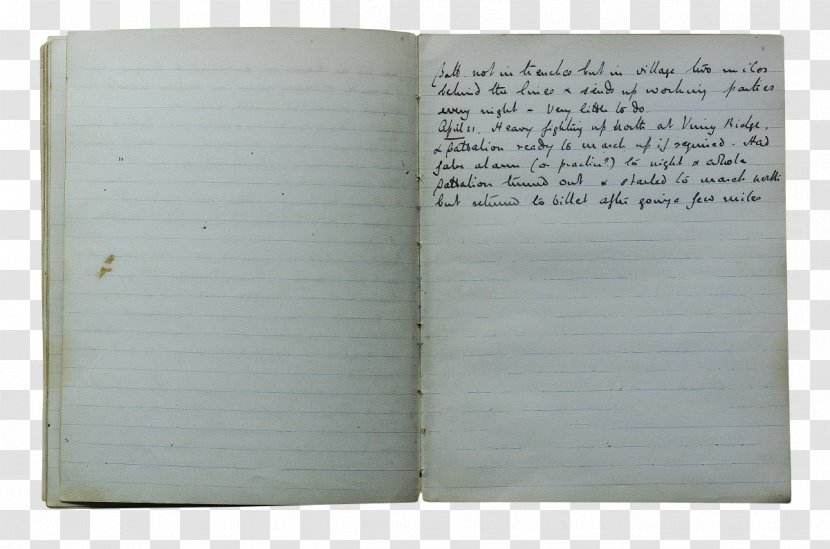 Batt. not in trenches but in village two miles
behind the lines & sends up working parties
every night - Very little to do.
April 21. Heavy fighting up North at Vimy Ridge,
& Battalion ready to march up if required - Had
false alarm (or practice?) to night & whole
Battalion turned out & started to march north
but returned to billet after going a few miles